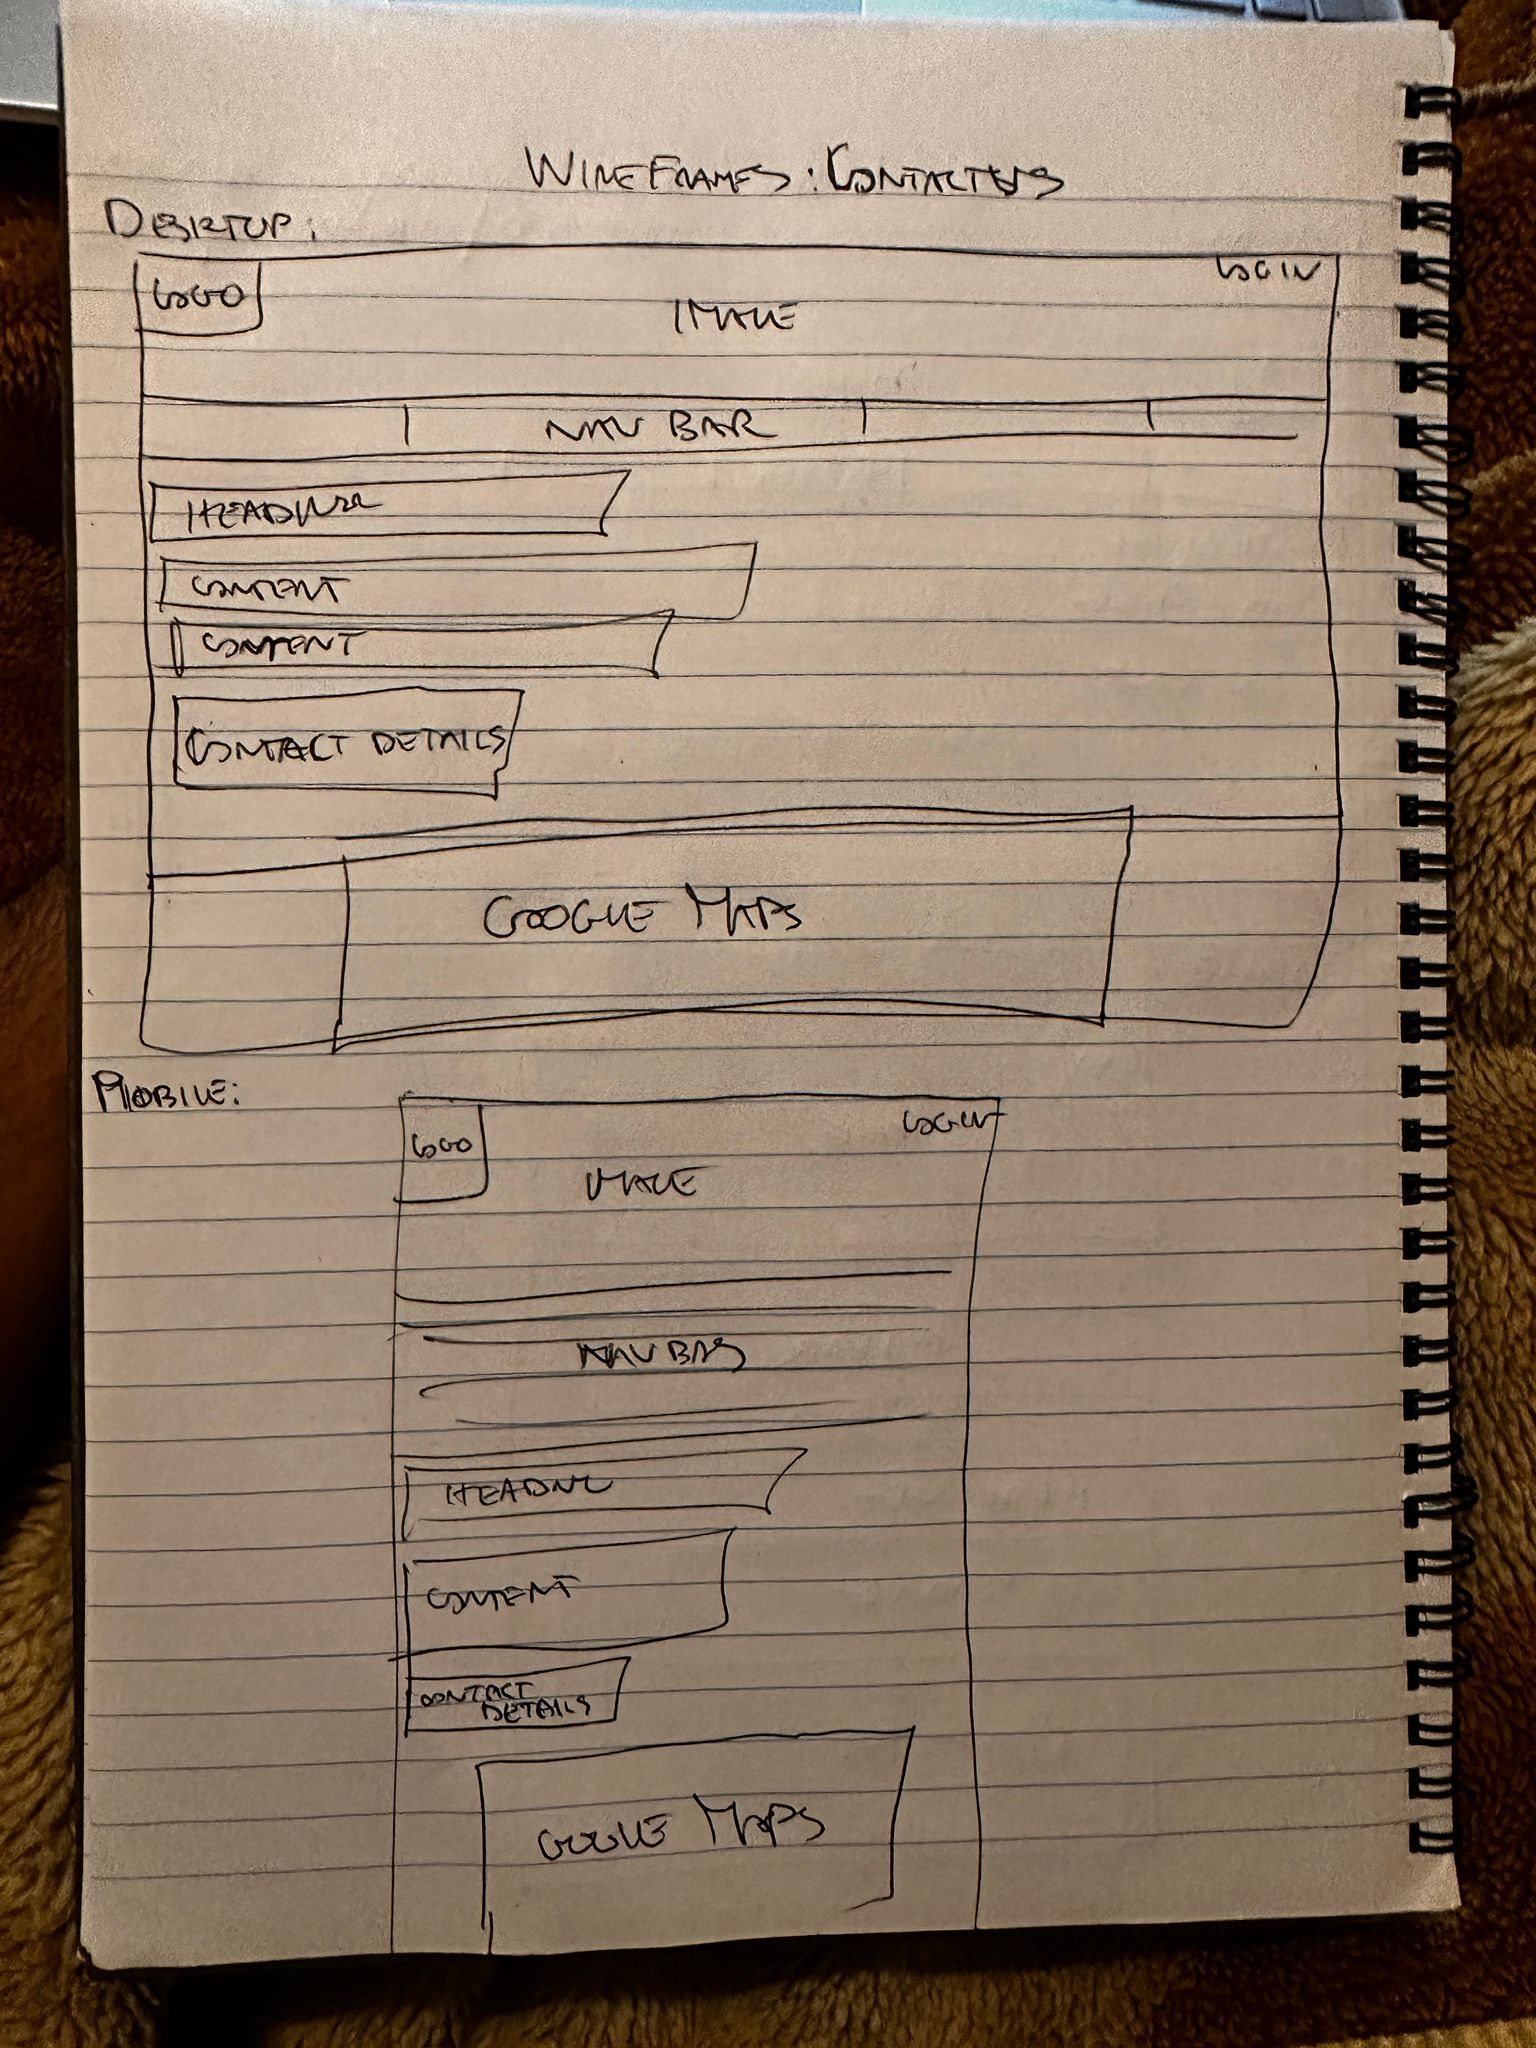 WIREFRAMES: CONTACT US
DESKTOP:
LOGO
LOGIN
IMAGE
NAV BAR
HEADING
CONTENT
CONTENT
CONTACT DETAILS
GOOGLE MAPS
MOBILE:
LOGO
LOGIN
IMAGE
NAV BAR
HEADING
CONTENT
CONTACT
DETAILS
GOOGLE MAPS